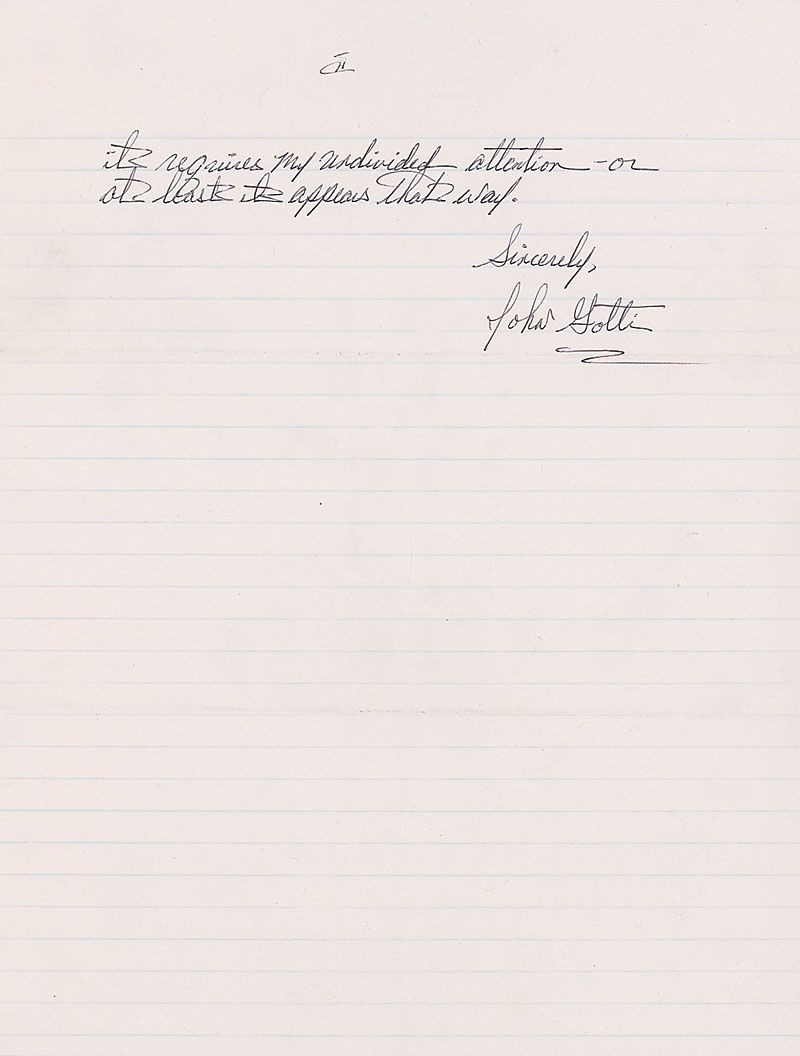 II
it requires my undivided attention - or
at least it appears that way.
Sincerely,
John Gotti